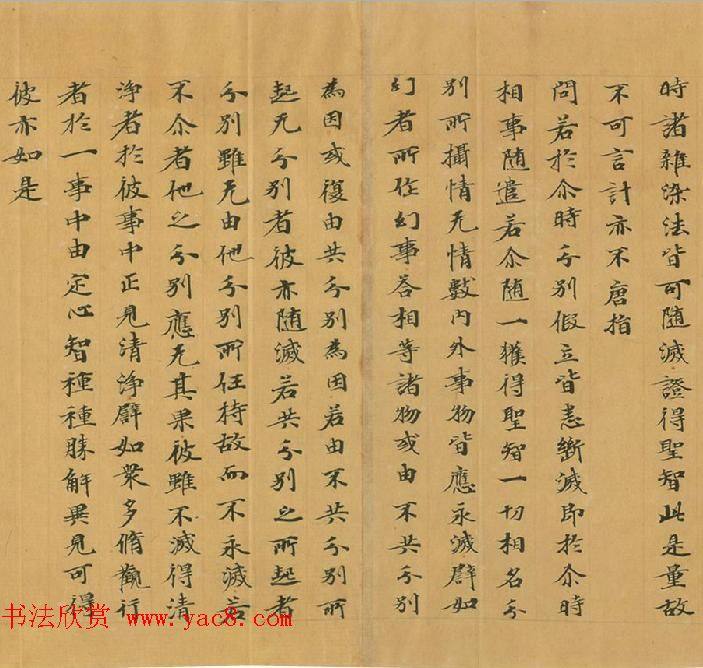 時諸雜染法皆可随滅證得聖智此是量故
不可言計亦不唐捐
問若於尒時分別假立皆悉斷滅即於尒時
相事随遣若尒随一獲得聖智一切相名分
別所攝情无情數内外事物皆應永滅譬如
幻者所作幻事荅相等諸物或由不共分別
為因或復由共分別為因若由不共分別所
起无分別者彼亦随滅若共分別之所起者
分別雖无由他分別所任持故而不永滅若
不尒者他之分別應无其果彼雖不滅得清
淨者於彼事中正見清淨譬如衆多脩觀行
者於一事中由定心智種種勝解異見可得
彼亦如是
书法欣赏 www.yac8.com